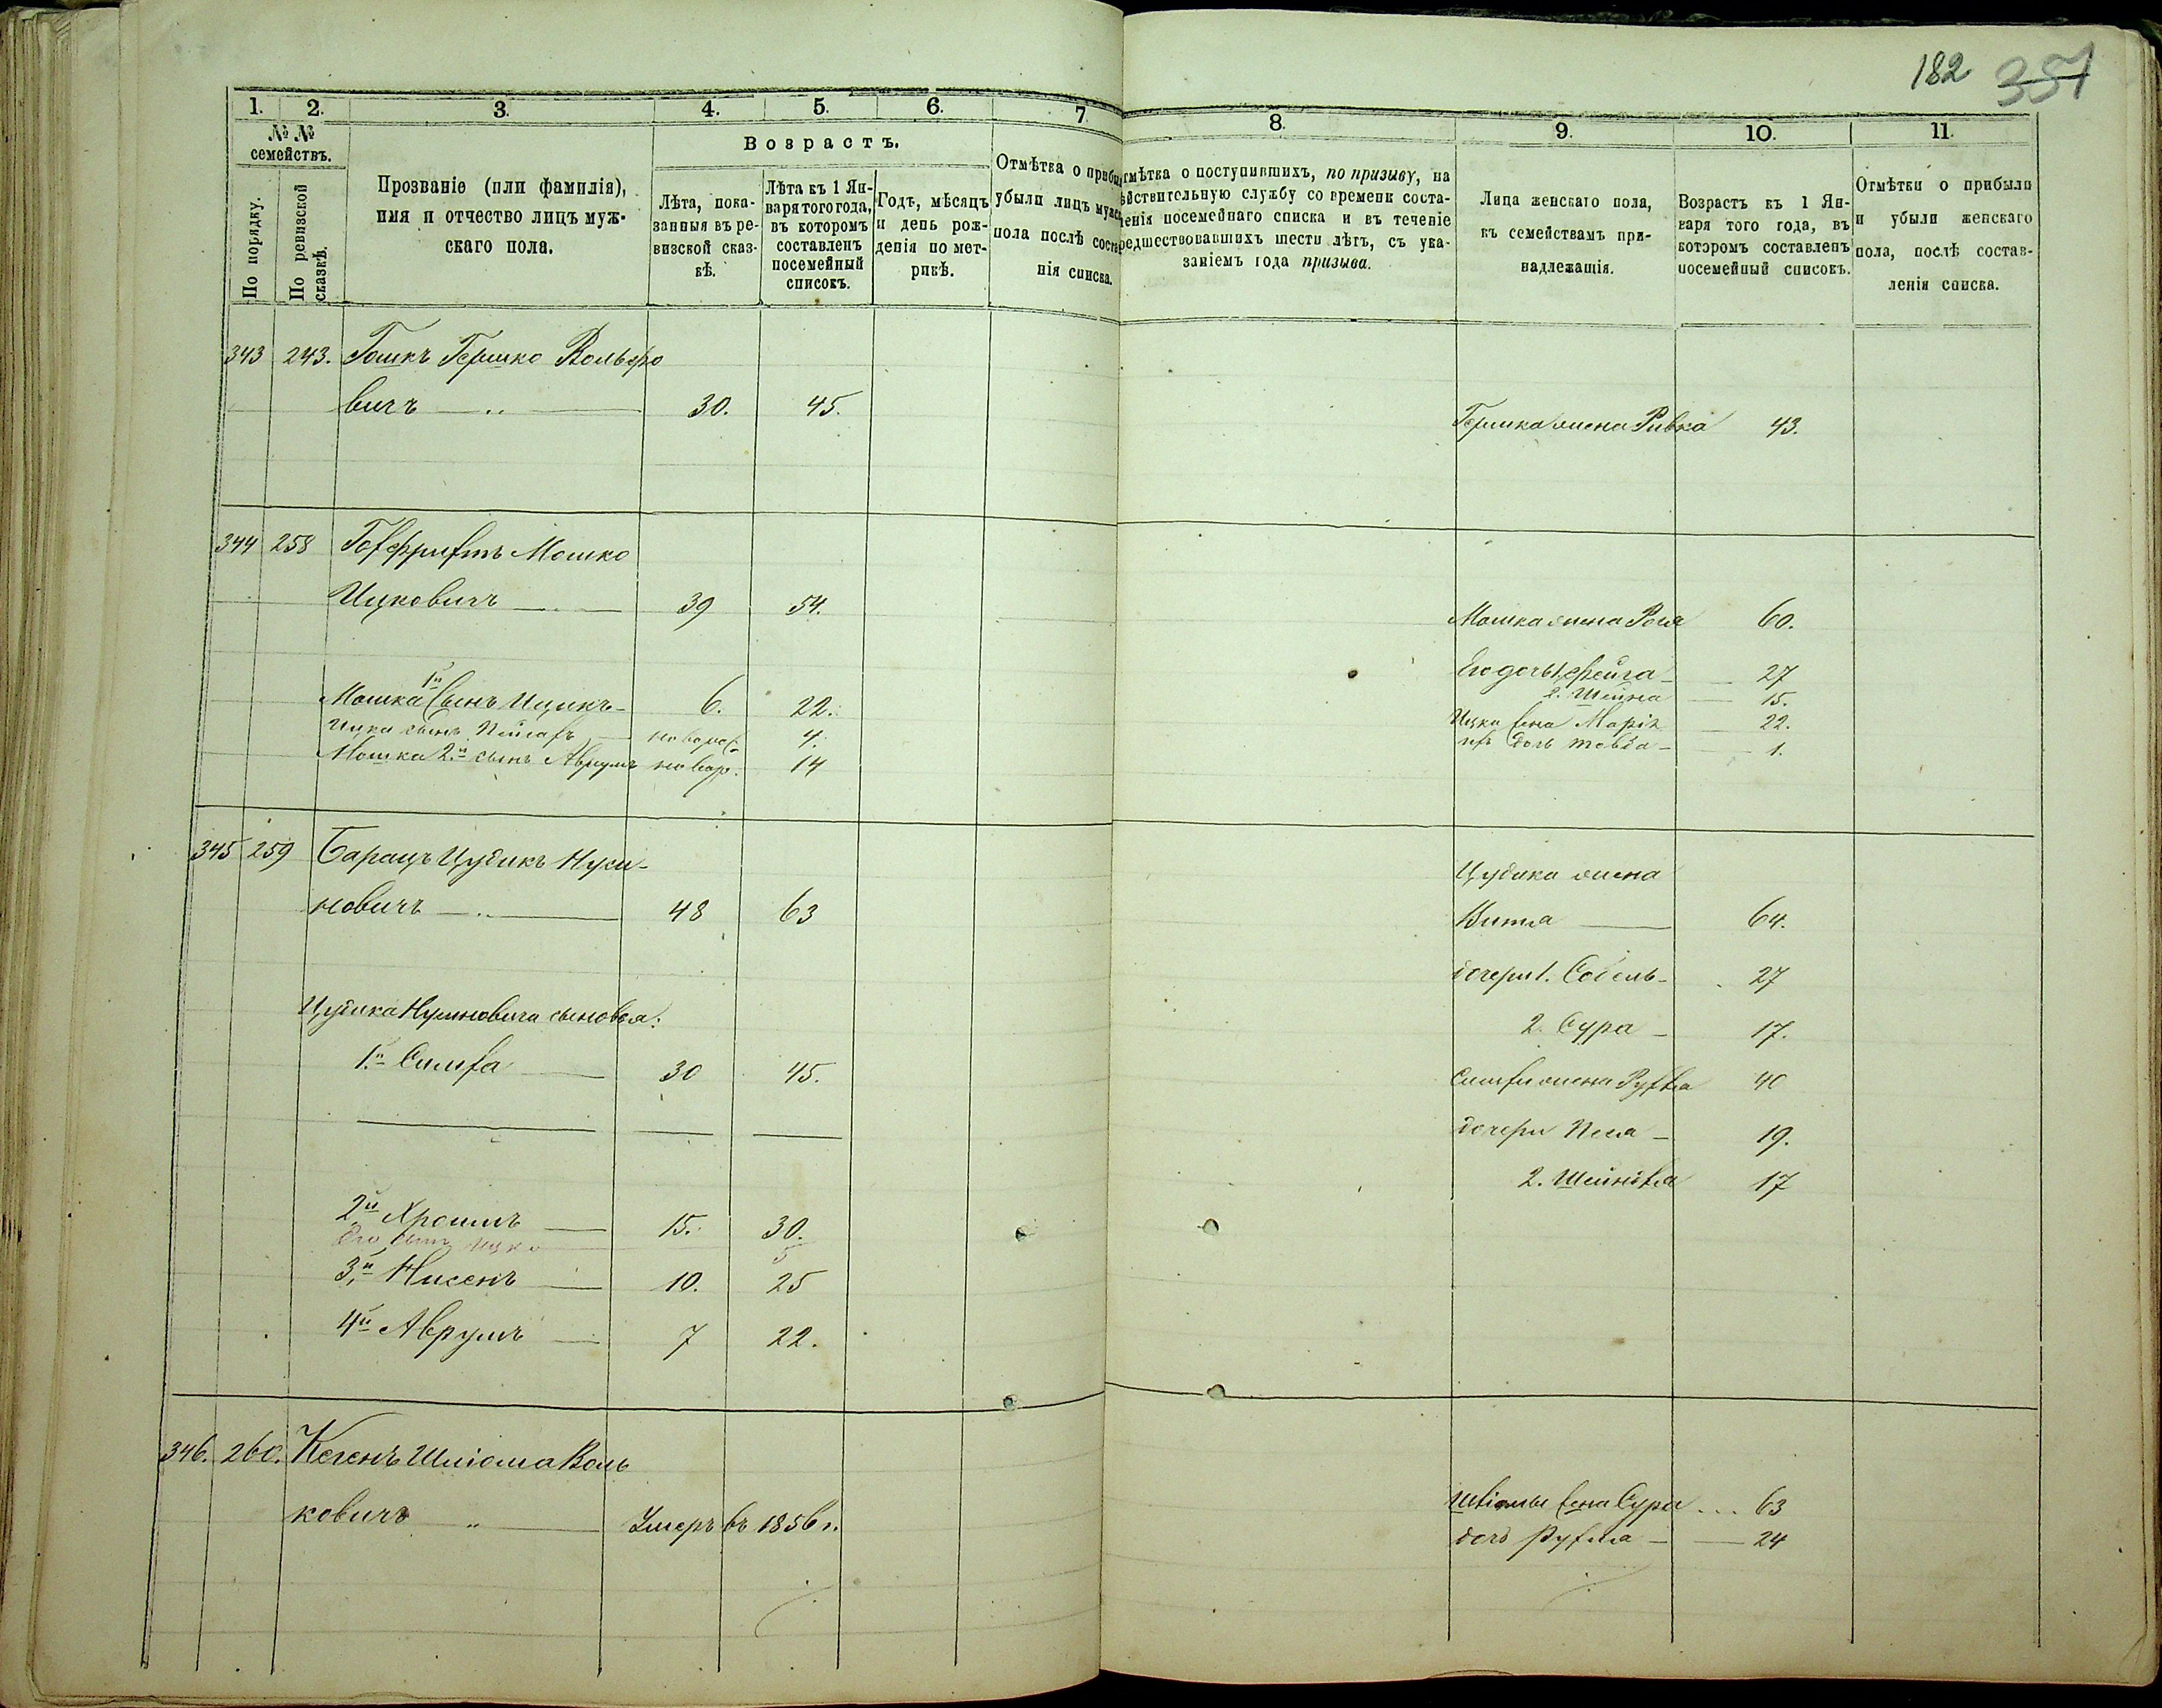 182 351
1. 2. 3. 4. 5. 6. 7 8. 9. 10. 11.
№ №
семействъ.
По порядку.
По ревизской сказкѣ.
Прозваніе (или фамилія),
имя и отчество лицъ муж-
скаго пола.
Возрастъ.
Лѣта, пока-
занныя въ ре-
визской сказ-
кѣ.
Лѣта къ 1 Ян-
варя того года,
въ которомъ
составленъ
посемейный
списокъ.
Годъ, мѣсяцъ
и день рож-
денія по мет-
рикѣ.
Отмѣтка о прибы
убыли лицъ мужс
пола послѣ соста
нія списка.
тмѣтка о поступившихъ, по призыву, на
ѣйствительную службу со времени соста-
ленія посемейнаго списка и въ теченіе
редшествовавшихъ шести лѣтъ, съ ука-
заніемъ года призыва.
Лица женскаго пола,
къ семействамъ при-
надлежащія.
Возрастъ къ 1 Ян-
варя того года, въ
которомъ составленъ
посемейный списокъ.
Отмѣтки о прибыли
и убыли женскаго
пола, послѣ состав-
ленія списка.
343 243. Гошкъ Гершко Вольфо
вичъ 30. 45. Гершка жена Ривка 43.
344 258 Мошко
Ицковичъ 39 54. Мошка жена Рося 60.
Его дочь 1. Фейга 27
Мошка 1й сынъ Ицикъ 6. 22. 2. Шейна 15.
Ицка сынъ Пейсахъ новорож. 4. Ицки жена Марія 22.
Мошка 2й сынъ Аврумъ новор. 14 ихъ дочь Товба 1.
345 259 Барацъ Цудикъ Нухи- Цудика жена
новичъ 48 63 64.
дочери 1. 27
Цудика сыновья: 2. Сура 17.
1й Симха 30 45. Симхи жена 40
дочери Песя 19.
2. 17
2й 15. 30.
его сынъ Ицко 5
3й Нисенъ 10. 25
4й Аврумъ 7 22.
346. 260. Шліома Воль
ковичъ Умеръ въ 1856 г. жена Сура 63
дочь 24